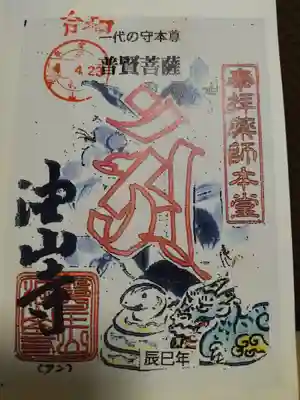 令和
4.4.23
一代の守本尊
普賢菩薩
奉拝薬師本堂
油山寺
(アン)
辰巳年